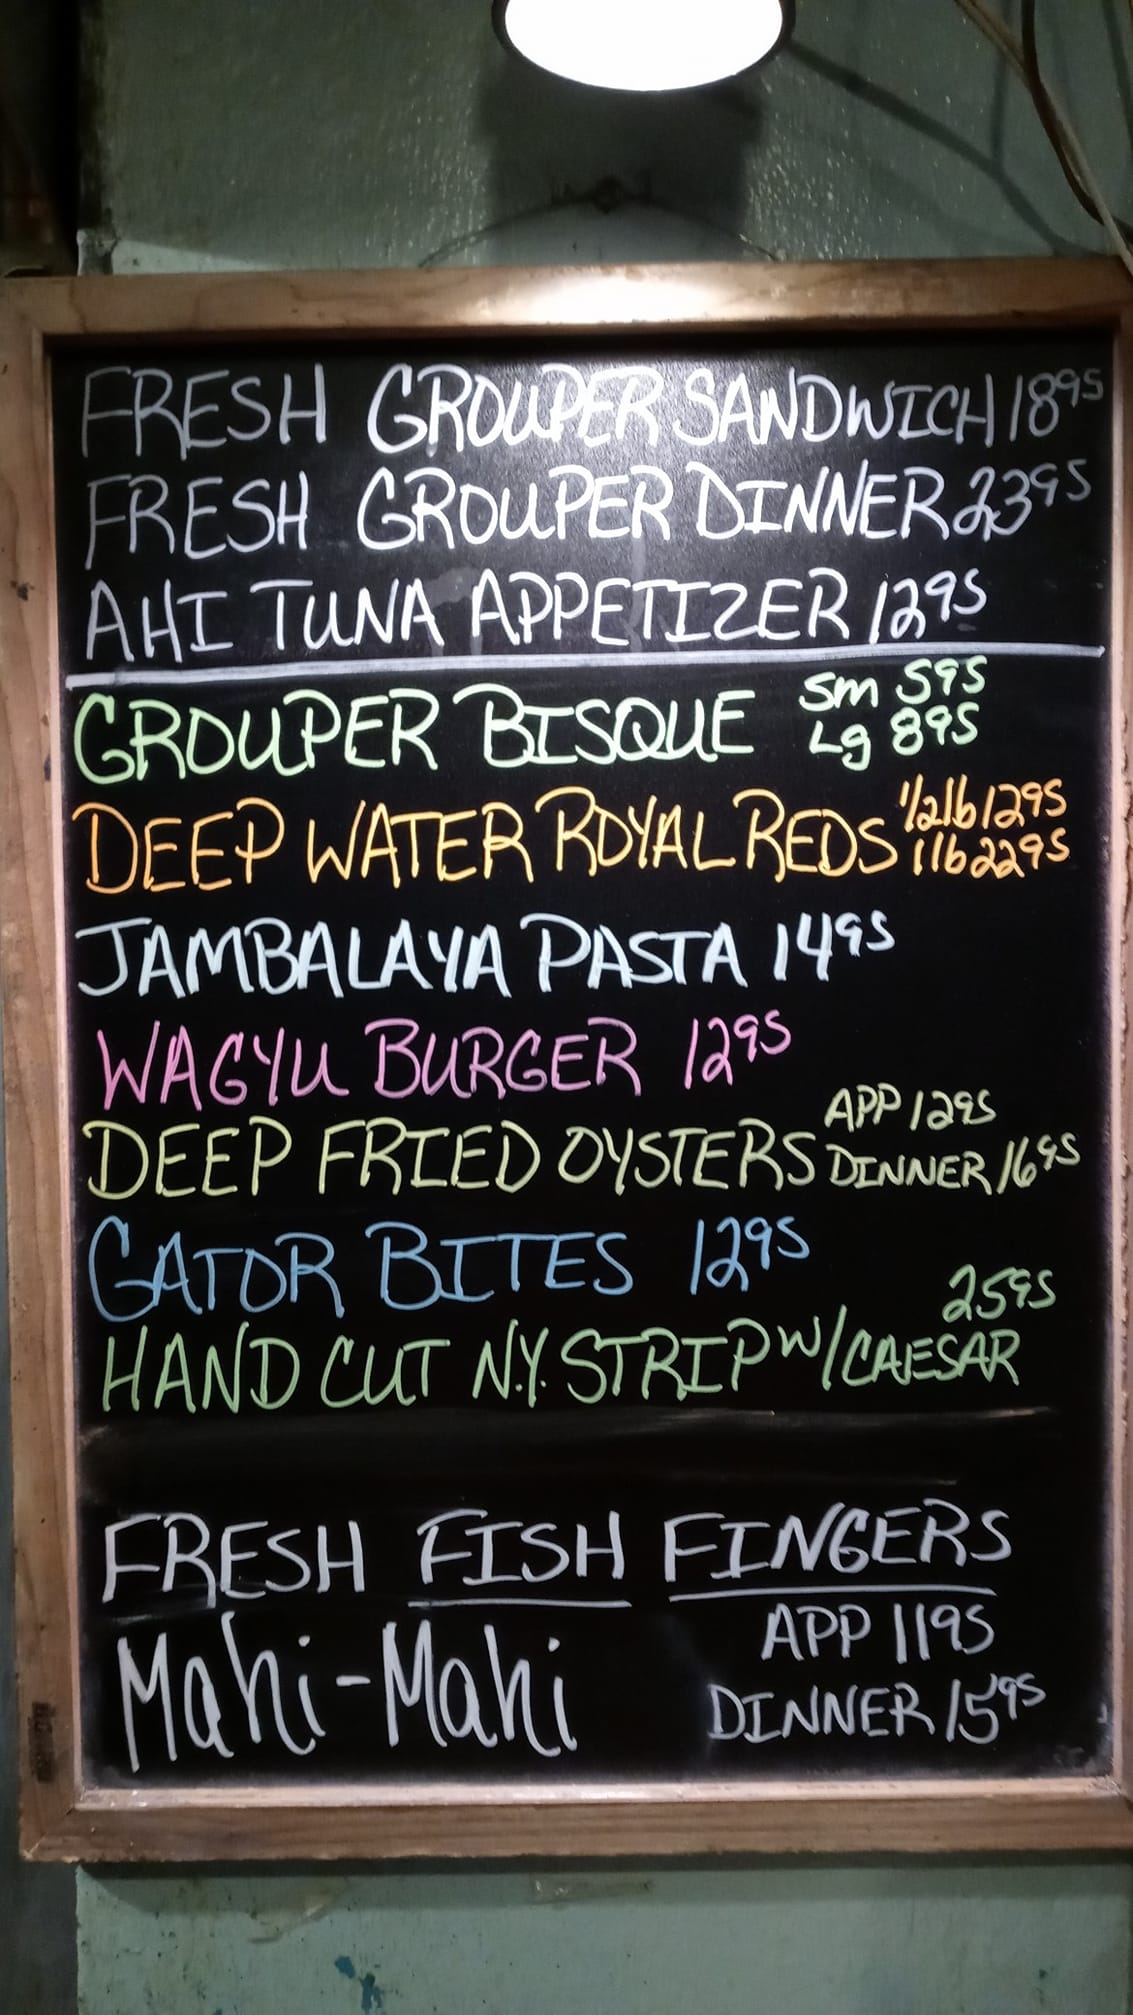 FRESH GROUPER SANDWICH 1895
FRESH GROUPER DINNER 2395
AHI TUNA APPETIZER 1295
GROUPER BISQUE Sm 595
Lg 895
DEEP WATER ROYAL REDS 1/2lb 1295
1lb 2295
JAMBALAYA PASTA 1495
WAGYU BURGER 1295
DEEP FRIED OYSTERS APP 1295
DINNER 1695
GATOR BITES 1295
HAND CUT N.Y. STRIP W/CAESAR 2595
FRESH FISH FINGERS
Mahi-Mahi APP 1195
DINNER 1595